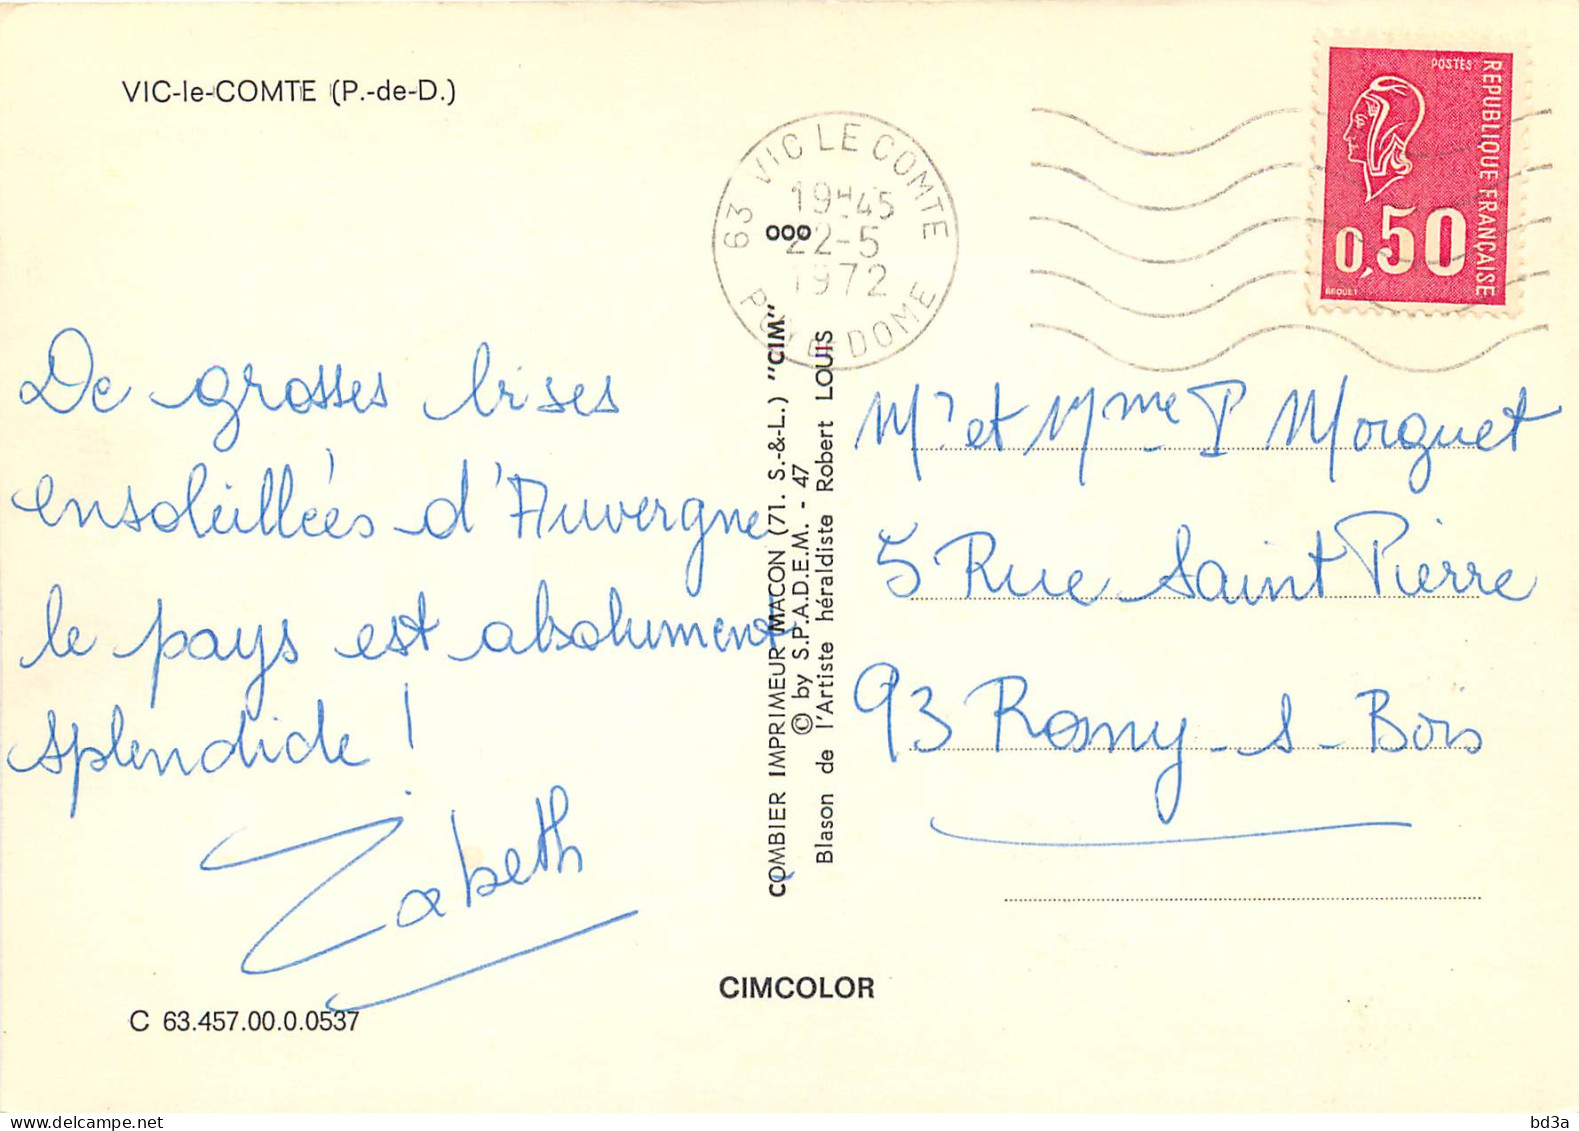 VIC-le-COMTE (P.-de-D.)
63 VIC LE COMTE
19H45
22-5
1972
PUY DE DOME
ooo
POSTES
REPUBLIQUE FRANÇAISE
0,50
BEQUET
De grosses bises
ensoleillées d'Auvergne
le pays est absolument
splendide !
Zabeth
Mr et Mme P Morguet
5 Rue Saint Pierre
93 Rosny-s-Bois
COMBIER IMPRIMEUR MACON (71. S.-&-L.) "CIM"
© by S.P.A.D.E.M. - 47
Blason de l'Artiste héraldiste Robert LOUIS
CIMCOLOR
C 63.457.00.0.0537
www.delcampe.net
bd3a